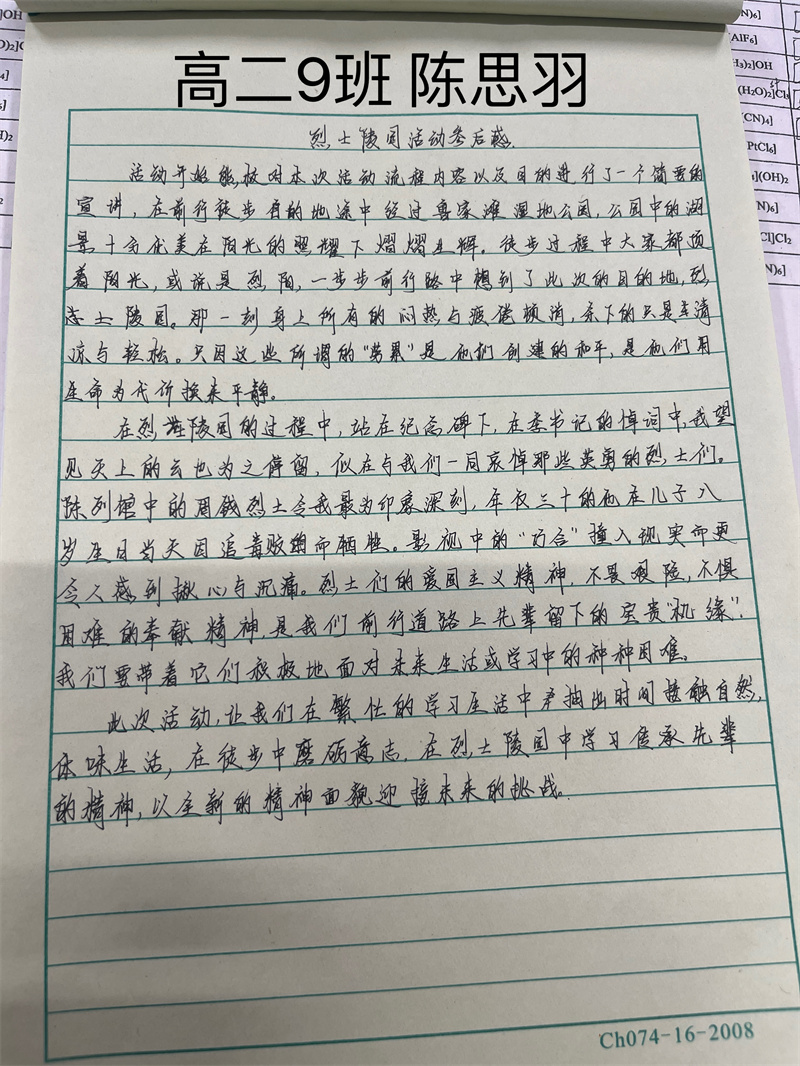 高二9班 陈思羽
烈士陵园活动参后感.
活动开始前,校对本次活动流程内容以及目的进行了一个简要的
宣讲,在前行徒步目的地途中经过客家滩湿地公园,公园中的湖
景十分优美在阳光的照耀下熠熠生辉。徒步过程中大家都顶
着阳光,或说是烈阳,一步步前行路中想到了此次的目的地,烈
士陵园。那一刻身上所有的闷热与疲倦顿消,余下的只是丰清
凉与轻松。只因这些所谓的“劳累”是他们创建的和平,是他们用
生命为代价换来平静。
在烈士陵园的过程中,站在纪念碑下,在李书记的悼词中,我望
见天上的云也为之停留,似在与我们一同哀悼那些英勇的烈士们。
陈列馆中的周钱烈士令我最为印象深刻,年仅三十的他在儿子八
岁生日当天因追毒贩而牺牲。影视中的“巧合”撞入现实而更
令人感到揪心与沉痛。烈士们的爱国主义精神,不畏艰险,不惧
困难的奉献精神,是我们前行道路上先辈留下的宝贵“机缘”.
我们要带着它们积极地面对未来生活或学习中的种种困难。
此次活动,让我们在繁忙的学习生活中抽出时间接触自然,
体味生活,在徒步中磨砺意志.在烈士陵园中学习传承先辈
的精神,以全新的精神面貌迎接未来的挑战。
Ch074-16-2008